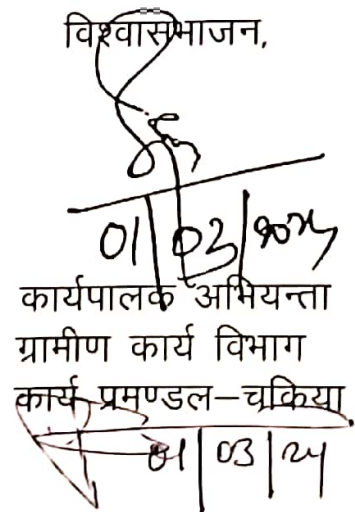 विश्वासभाजन,
01/03/2024
कार्यपालक अभियन्ता
ग्रामीण कार्य विभाग
कार्य प्रमण्डल–चकिया
01/03/24